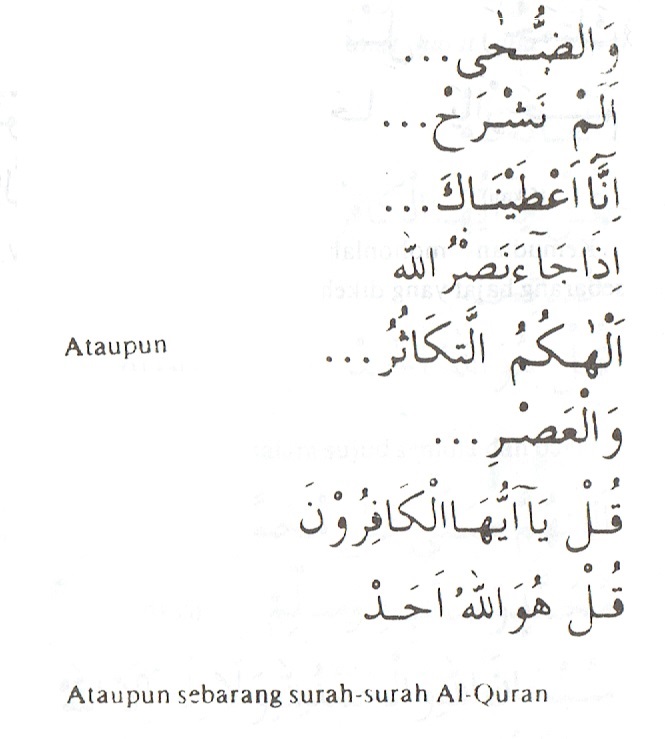 وَالضُّحٰى...
اَلَمْ نَشْرَحْ...
اِنَّآ اَعْطَيْنَاكَ...
اِذَا جَآءَ نَصْرُ اللّٰه
Ataupun اَلْهٰكُمُ التَّكَاثُرُ...
وَالْعَصْرِ...
قُلْ يَآ اَيُّهَا الْكَافِرُوْنَ
قُلْ هُوَ اللّٰهُ اَحَدْ
Ataupun sebarang surah-surah Al-Quran